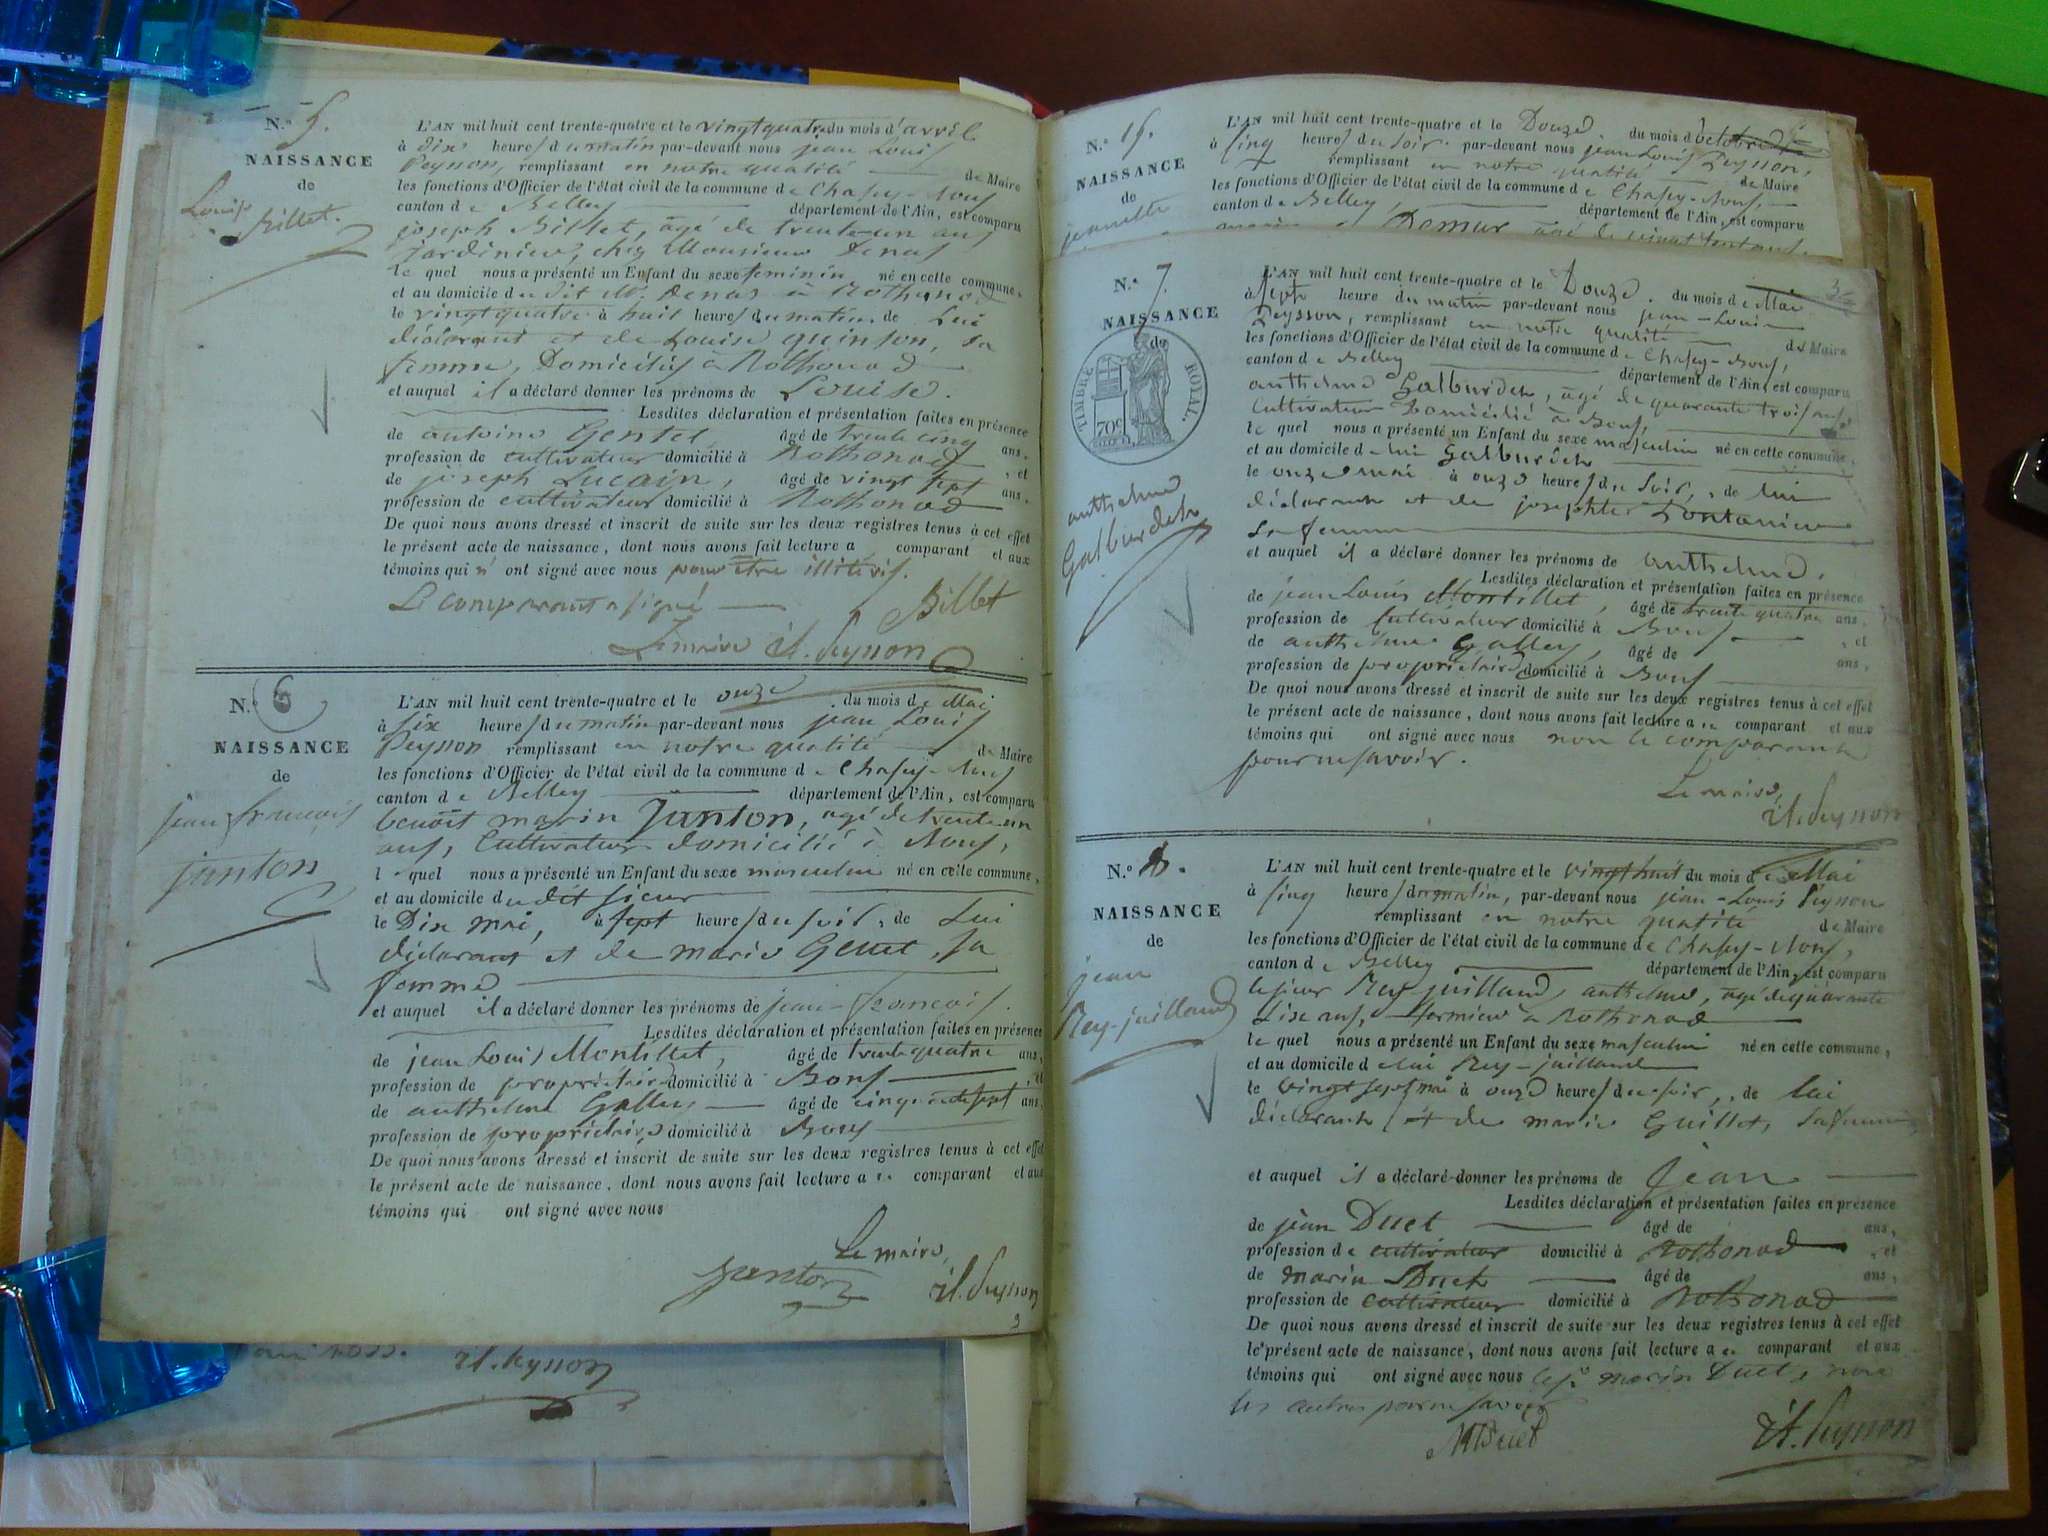 N.° 5.
NAISSANCE
de
Louise
Billet.
L'AN mil huit cent trente-quatre et le vingtquatre du mois d'avril
à dix heures du matin par-devant nous jean Louis
Peysson, remplissant en notre qualité de Maire
les fonctions d'Officier de l'état civil de la commune de Chazey-Bons
canton de Belley département de l'Ain, est comparu
joseph Billet, âgé de trente un ans
jardinier, chez Monsieur Denas
le quel nous a présenté un Enfant du sexe feminin né en cette commune,
et au domicile du dit Mr. Denas à Rothonod
le vingtquatre à huit heures du matin, de Lui
déclarant et de Louise quinson, sa
femme, Domiciliés à Rothonod
et auquel il a déclaré donner les prénoms de Louise.
Lesdites déclaration et présentation faites en présence
de antoine Gentet âgé de trente cinq ans,
profession de cultivateur domicilié à Rothonod, et
de joseph Lucain, âgé de vingt sept ans,
profession de cultivateur domicilié à Rothonod
De quoi nous avons dressé et inscrit de suite sur les deux registres tenus à cet effet
le présent acte de naissance, dont nous avons fait lecture a comparant et aux
témoins qui n' ont signé avec nous pour être illitérés.
Le comparant a signé Billet
Le maire Peysson
N.° 6
NAISSANCE
de
jean francois
janton
L'AN mil huit cent trente-quatre et le onze du mois de Mai
à six heures du matin par-devant nous jean Louis
Peysson remplissant en notre qualité de Maire
les fonctions d'Officier de l'état civil de la commune de Chazey-Bons
canton de Belley département de l'Ain, est comparu
benoît marin janton, agé de trente un
ans, Cultivateur domicilié à Bons,
l quel nous a présenté un Enfant du sexe masculin né en cette commune,
et au domicile du dit sieur
le Dix mai, à sept heures du soir, de Lui
déclarant et de marie Genet, sa
femme
et auquel il a déclaré donner les prénoms de jean-françois.
Lesdites déclaration et présentation faites en présence
de jean Louis Montillet, âgé de trente quatre ans,
profession de propriétaire domicilié à Bons, et
de anthelme Galley âgé de cinquante sept ans,
profession de propriétaire domicilié à Bons
De quoi nous avons dressé et inscrit de suite sur les deux registres tenus à cet effet
le présent acte de naissance, dont nous avons fait lecture a comparant et aux
témoins qui ont signé avec nous
Le maire,
janton Peysson
Peysson
N.° 15.
NAISSANCE
de
jeanette
L'AN mil huit cent trente-quatre et le Douze du mois d'octobre
à Cinq heures du soir par-devant nous jean Louis Peysson,
remplissant en notre qualité de Maire
les fonctions d'Officier de l'état civil de la commune de Chazey-Bons,
canton de Belley, département de l'Ain, est comparu
Demur agé de vingt
N.° 7.
NAISSANCE
de
TIMBRE ROYAL.
70c
anthelme
Galburdet
L'AN mil huit cent trente-quatre et le Douze du mois de Mai
à sept heure du matin par-devant nous jean-Louis
Peysson, remplissant en notre qualité de Maire
les fonctions d'Officier de l'état civil de la commune de Chazey-Bons,
canton de Belley département de l'Ain, est comparu
anthelme Galburdet, agé de quarante trois ans,
Cultivateur Domicilié à Bons,
le quel nous a présenté un Enfant du sexe masculin né en cette commune,
et au domicile de lui Galburdet
le onze mai à onze heures du soir, de lui
déclarant et de josephte Fontanier
sa femme
et auquel il a déclaré donner les prénoms de anthelme.
Lesdites déclaration et présentation faites en présence
de jean Louis Montillet, âgé de trente quatre ans,
profession de Cultivateur domicilié à Bons, et
de anthelme Galley, âgé de ans,
profession de propriétaire domicilié à Bons
De quoi nous avons dressé et inscrit de suite sur les deux registres tenus à cet effet
le présent acte de naissance, dont nous avons fait lecture a comparant et aux
témoins qui ont signé avec nous non le comparant
pour ne savoir.
Le maire,
Peysson
N.° 8.
NAISSANCE
de
jean
Rey-juilland
L'AN mil huit cent trente-quatre et le vingthuit du mois de Mai
à Cinq heures du matin, par-devant nous jean-Louis Peysson
remplissant en notre qualité de Maire
les fonctions d'Officier de l'état civil de la commune de Chazey-Bons,
canton de Belley département de l'Ain, est comparu
le sieur Rey-juilland, anthelme, agé de quarante
dixe ans, fermier à Rothonod
le quel nous a présenté un Enfant du sexe masculin né en cette commune,
et au domicile de lui Rey-juilland
le vingt sept mai à onze heures du soir, de lui
déclarant et de marie Guillet, sa femme
et auquel il a déclaré donner les prénoms de jean
Lesdites déclaration et présentation faites en présence
de jean Duet âgé de ans,
profession de cultivateur domicilié à Rothonod, et
de marin Duet âgé de ans,
profession de cultivateur domicilié à Rothonod
De quoi nous avons dressé et inscrit de suite sur les deux registres tenus à cet effet
le présent acte de naissance, dont nous avons fait lecture a comparant et aux
témoins qui ont signé avec nous le sr. marin Duet, non
les autres pour ne savoir
MDuet Peysson